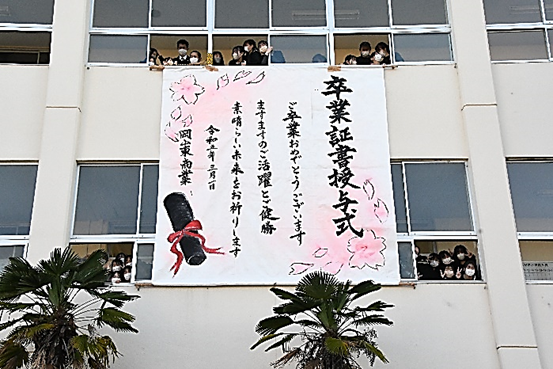 卒業証書授与式
ご卒業おめでとうございます
ますますのご活躍とご健勝
素晴らしい未来をお祈ります
令和五年三月一日
岡東商業